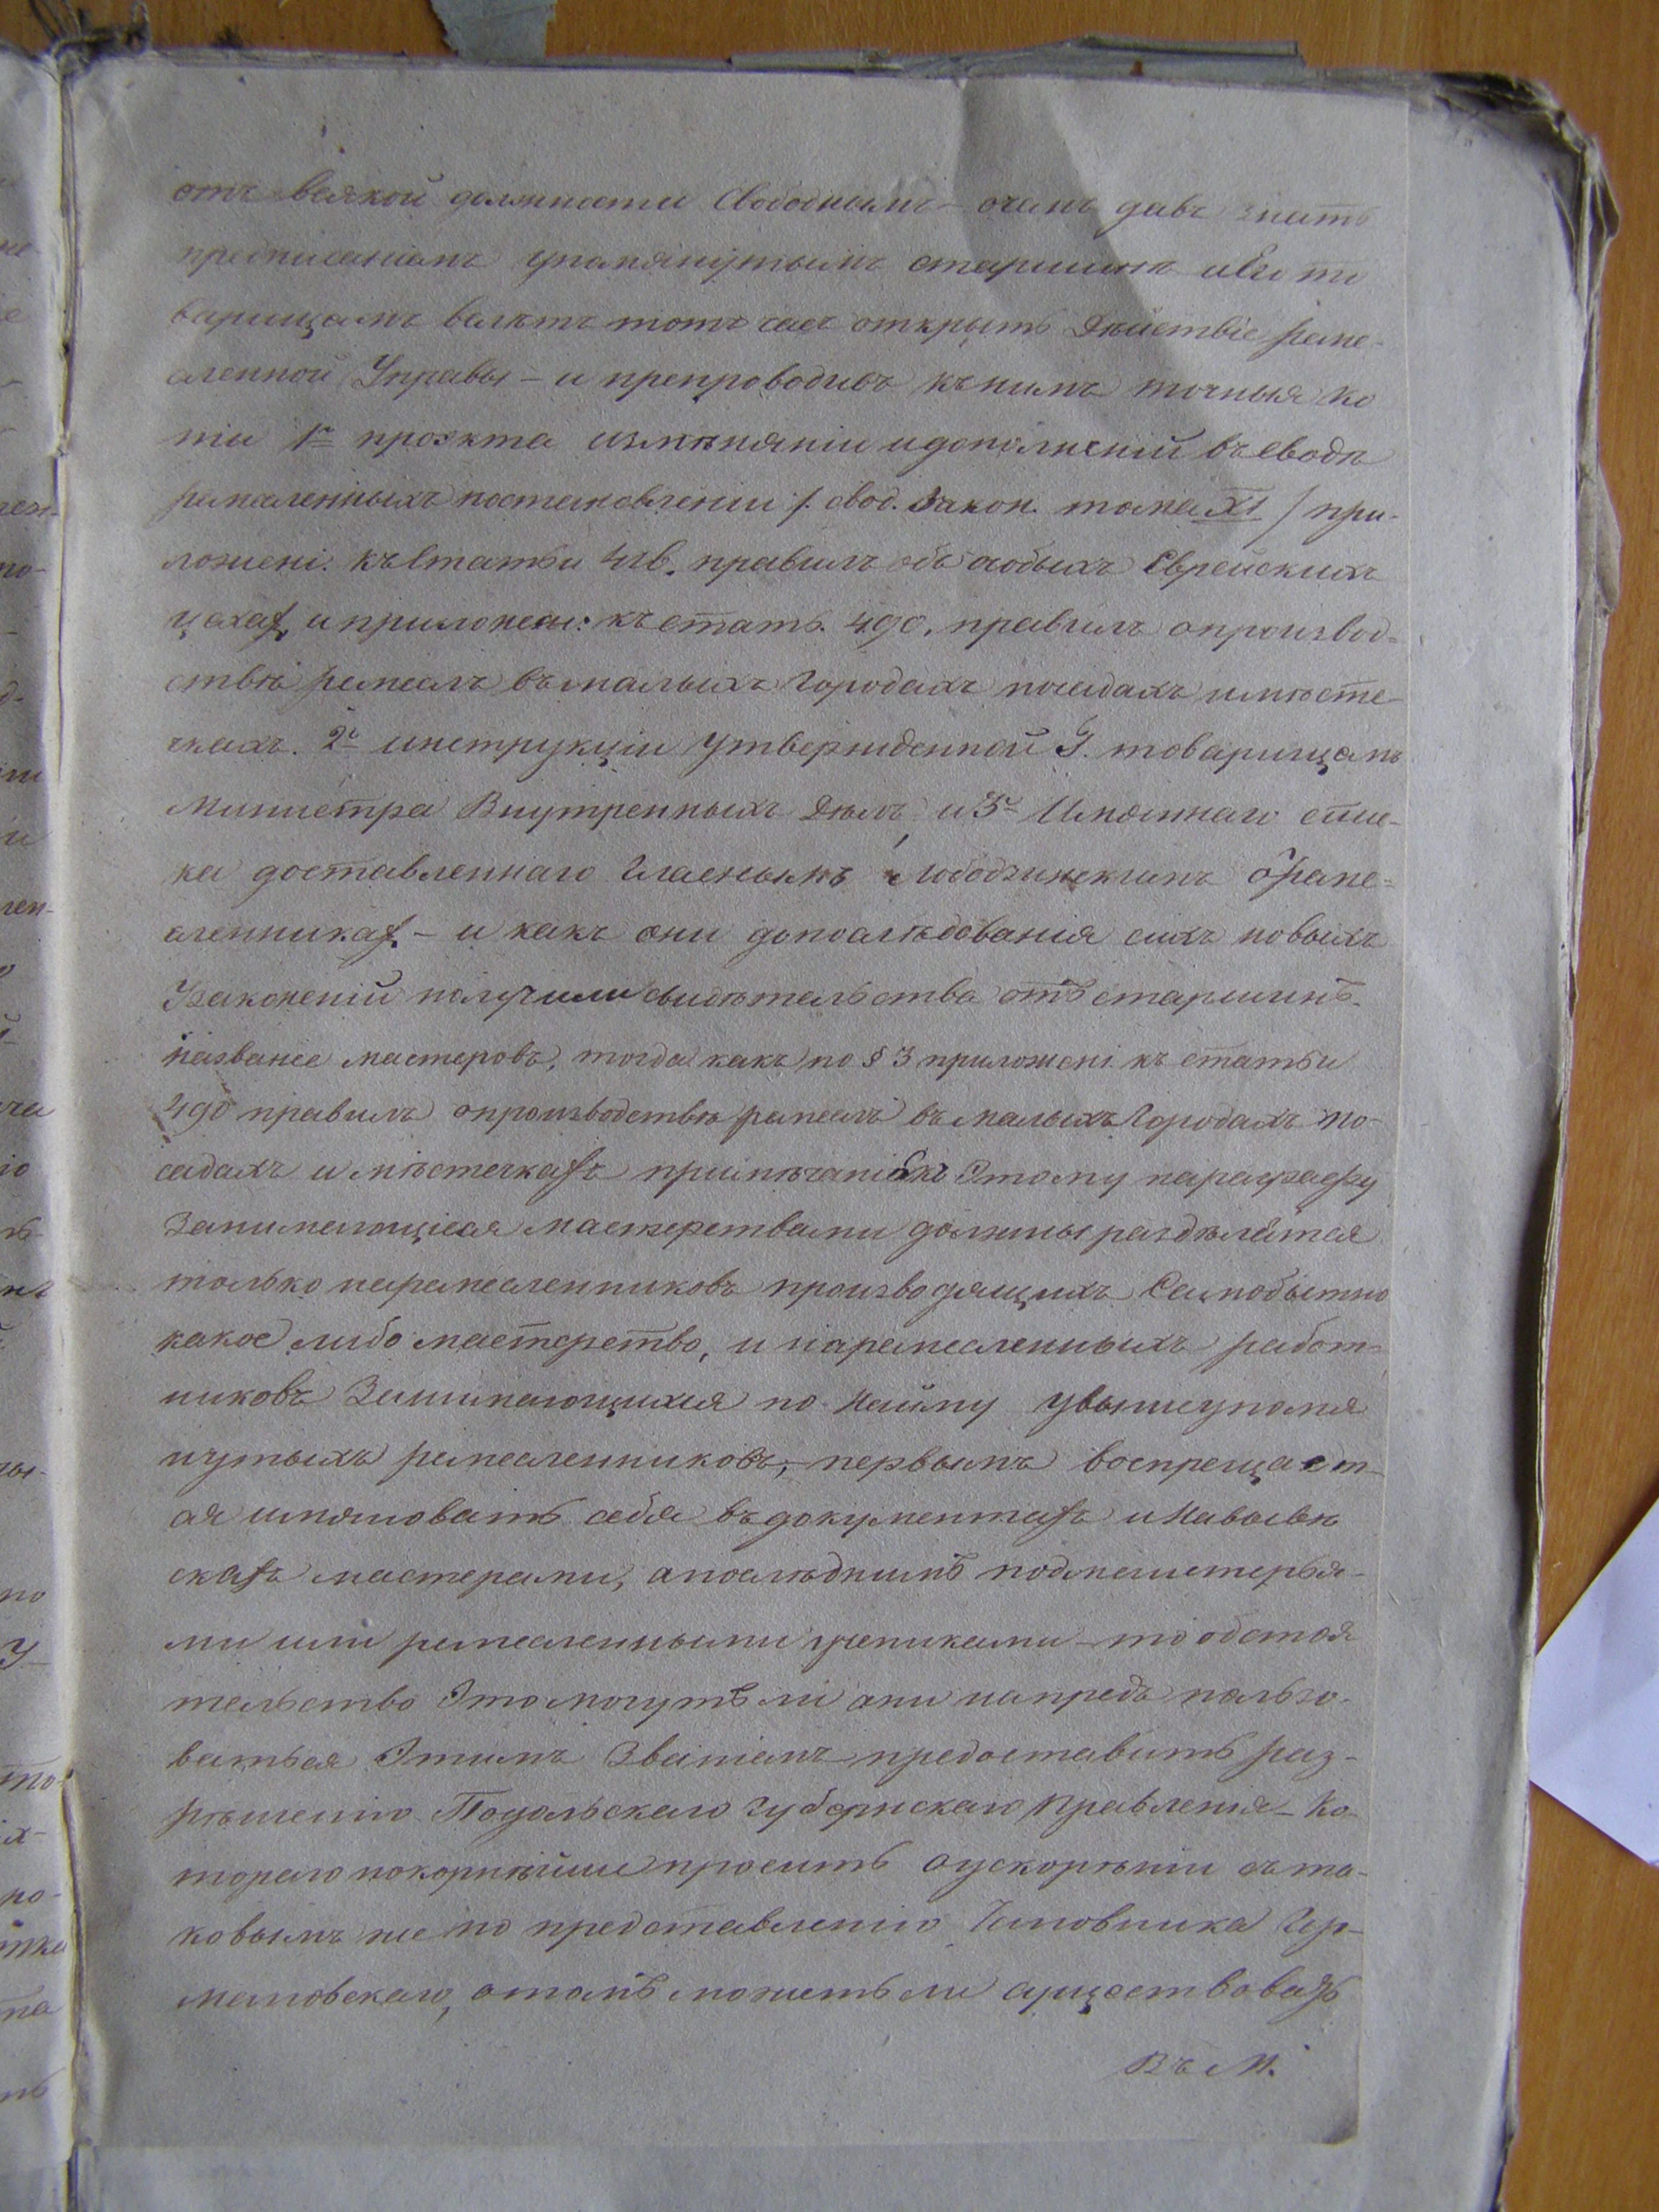 отъ всякой должности Свободнымъ – о чемъ давъ знать
предписаніемъ упомянутымъ старшинѣ и Его то
варищамъ велѣть тотъ часъ открыть Дѣйствіе реме-
сленной Управы – и препроводивъ къ нимъ точныя ко
піи 1е проэкта измѣняніи и дополненій въ сводѣ
ремесленныхъ постановленіи /. свод. Закон. тома XI / при-
ложені. къ Статьи 416. правилъ объ особыхъ Еврейскихъ
цехах, и приложен: къ стать. 490, правилъ о производ-
ствѣ ремеслъ въ малыхъ Городахъ посадахъ и мѣсте-
чкахъ. 2е инструкціи утвержденной Г. товарищемъ
Министра Внутренныхъ Дѣлъ, и 3е Имяннаго спис-
ка доставленнаго Гласнымъ о реме-
сленниках – и какъ они до послѣдованія сихъ новыхъ
Узаконеній получили свидѣтельства отъ старшинъ
названіе мастеровъ, тогда какъ по § 3 приложені. къ статьи
490 правилъ о производствѣ ремеслъ въ малыхъ Городахъ по-
садахъ и мѣстечкахъ примѣчаніе къ Этому параграфу
Занимающіеся мастерствами должны раздѣлятся
только на ремесленниковъ производящихъ Самобытно
какое либо мастерство, и на ремесленныхъ работ-
никовъ Занимающихся по Найму у вышеупомя
нутыхъ ремесленниковъ, первымъ воспрещает-
ся имяновать себя въ документахъ и На вывѣ
скахъ мастерами, а послѣднимъ подмастерья-
ми или ремесленными учениками – то обстоя
тельство Это могутъ ли они напредь пользо-
ваться Этимъ Званіемъ предоставить раз-
рѣшенію Подольскаго Губернскаго Правленія – Ко-
тораго покорнѣйши просить о ускорѣніи съ та-
ковымъ же по представленію Чиновника
о томъ можетъ ли существовать
Въ М.